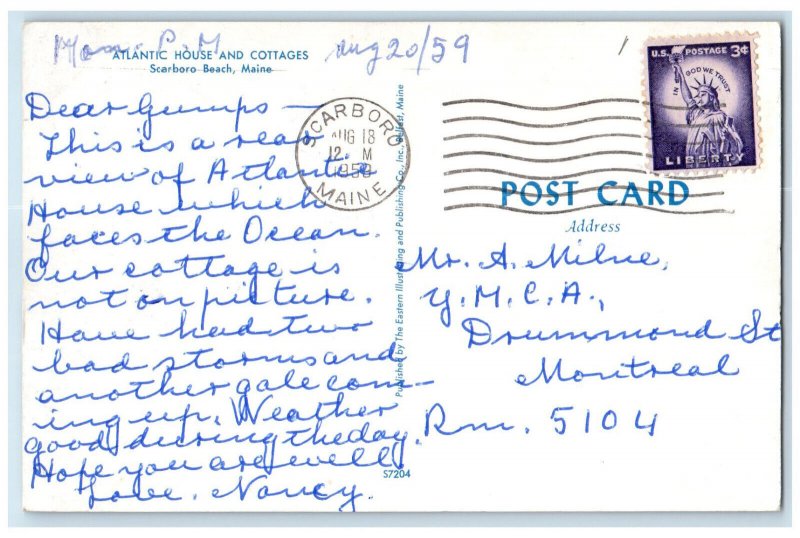 Mon. P.M
Aug 20/59
ATLANTIC HOUSE AND COTTAGES
Scarboro Beach, Maine
Dear Gumps —
This is a rear
view of Atlantic
House which
faces the Ocean.
Our cottage is
not on picture.
Have had two
bad storms and
another gale com-
ing up. Weather
good during the day.
Hope you are well
Love. Nancy.
SCARBORO
AUG 18
12 M
1959
MAINE
Published by The Eastern Illustrating and Publishing Co., Inc., Belfast, Maine
S7204
U.S. POSTAGE 3¢
IN GOD WE TRUST
LIBERTY
POST CARD
Address
Mr. A. Milne,
Y.M.C.A.,
Drummond St
Montreal
Rm. 5104